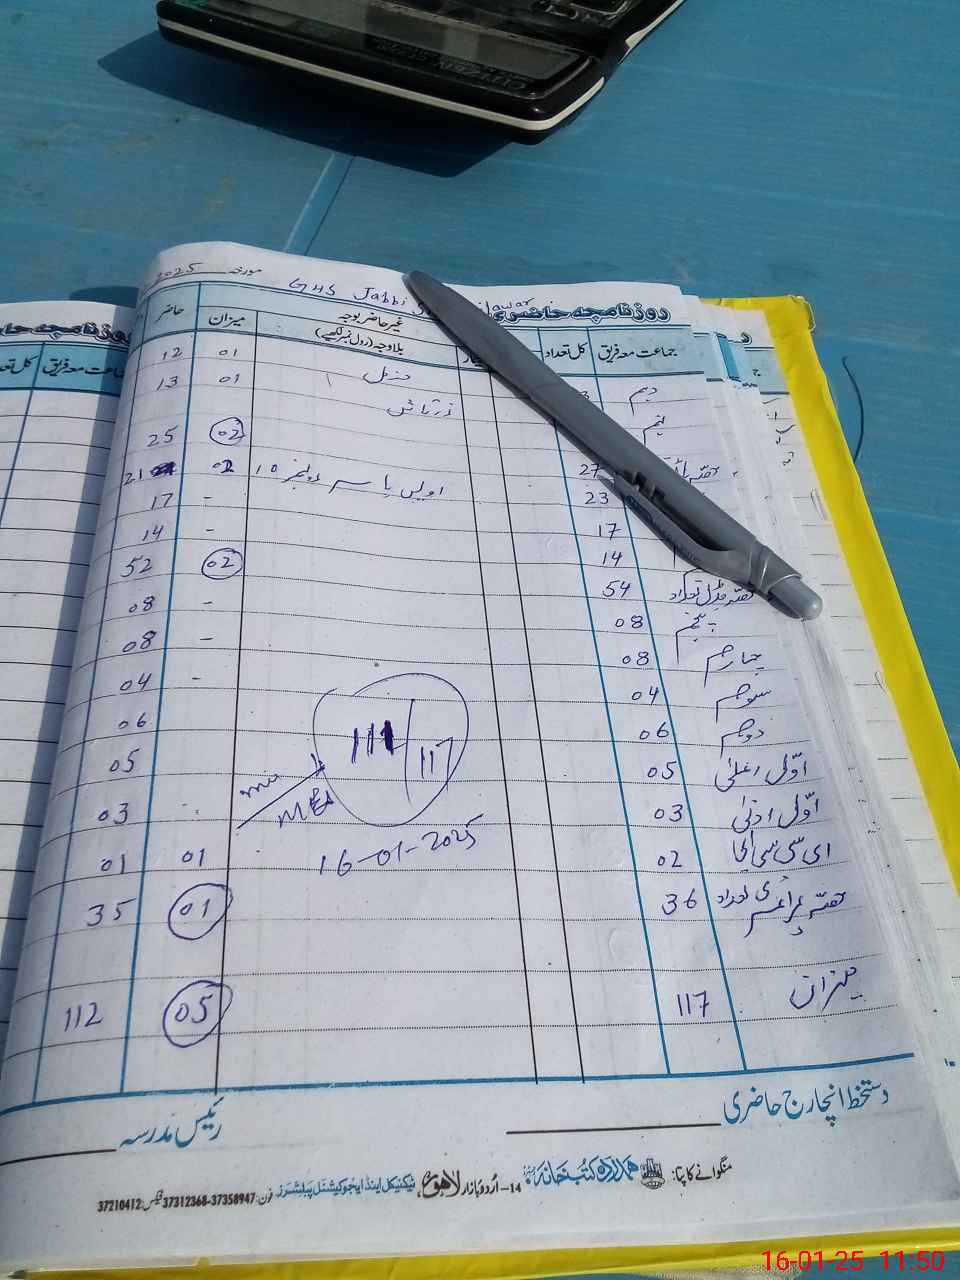 CITIZEN
2025 مورخہ
GHS Jabbi
روزنامچہ حاضری
جماعت معہ فریق کل تعداد غیر حاضر بوجہ بلاوجہ (رول نمبر لکھیے) میزان حاضر
دہم 01 12
نہم 01 13
02 25
27 اویس یاسر رولنمبر 10 02 21
23 - 17
17 - 14
14
54 02 52
پنجم 08 - 08
چہارم 08 - 08
سوم 04 - 04
دوم 06 06
اوّل اعلیٰ 05 05
اوّل ادنیٰ 03 03
ای سی سی ای 02 01 01
حصہ پرائمری تعداد 36 01 35
میزان 117 05 112
111/117
MEA
16-01-2025
دستخط انچارج حاضری
رئیس مدرسہ
منگوانے کا پتا: ہمدرد کتب خانہ 14-اُردو بازار لاہور ٹیکنیکل اینڈ ایجوکیشنل پبلشرز فون: 37358947-37312368 فیکس: 37210412
16-01-25 11:50